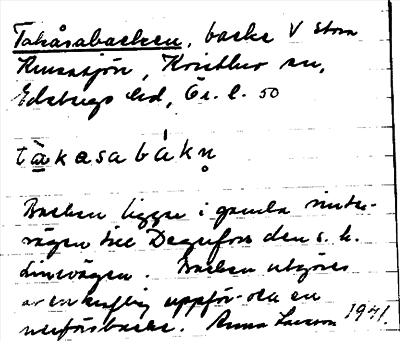 Takåsabacken, backe V Stora
sjön, Kristbro sn,
Edsbergs hd, Ör. l. 50
tàkasabákn̥
Backen ligger i gamla vinter-
vägen till Degerfors den s. k.
Linvägen. Backen utgöres
av en kraftig uppför- och en
nerförsbacke. Anna Larsson 1941.